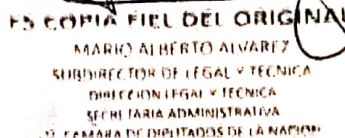 ES COPIA FIEL DEL ORIGINAL
MARIO ALBERTO ALVAREZ
SUBDIRECTOR DE LEGAL Y TECNICA
DIRECCION LEGAL Y TECNICA
SECRETARIA ADMINISTRATIVA
CAMARA DE DIPUTADOS DE LA NACION